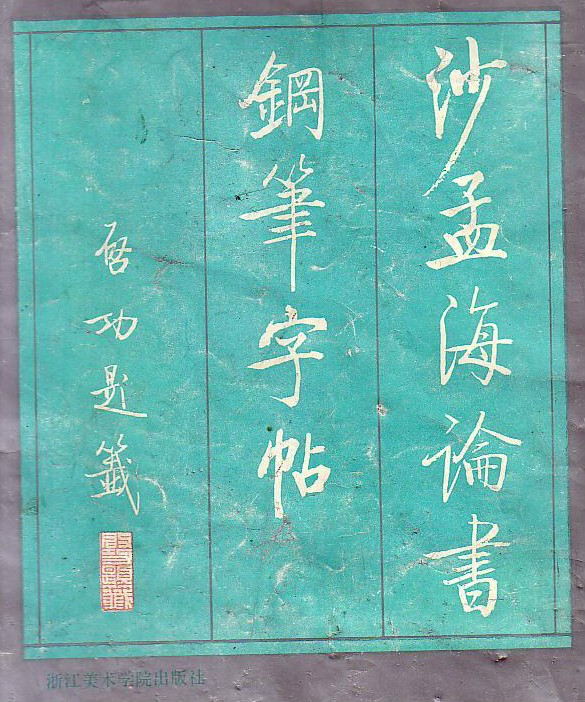 沙孟海論書
鋼筆字帖
启功題籤
浙江美术学院出版社